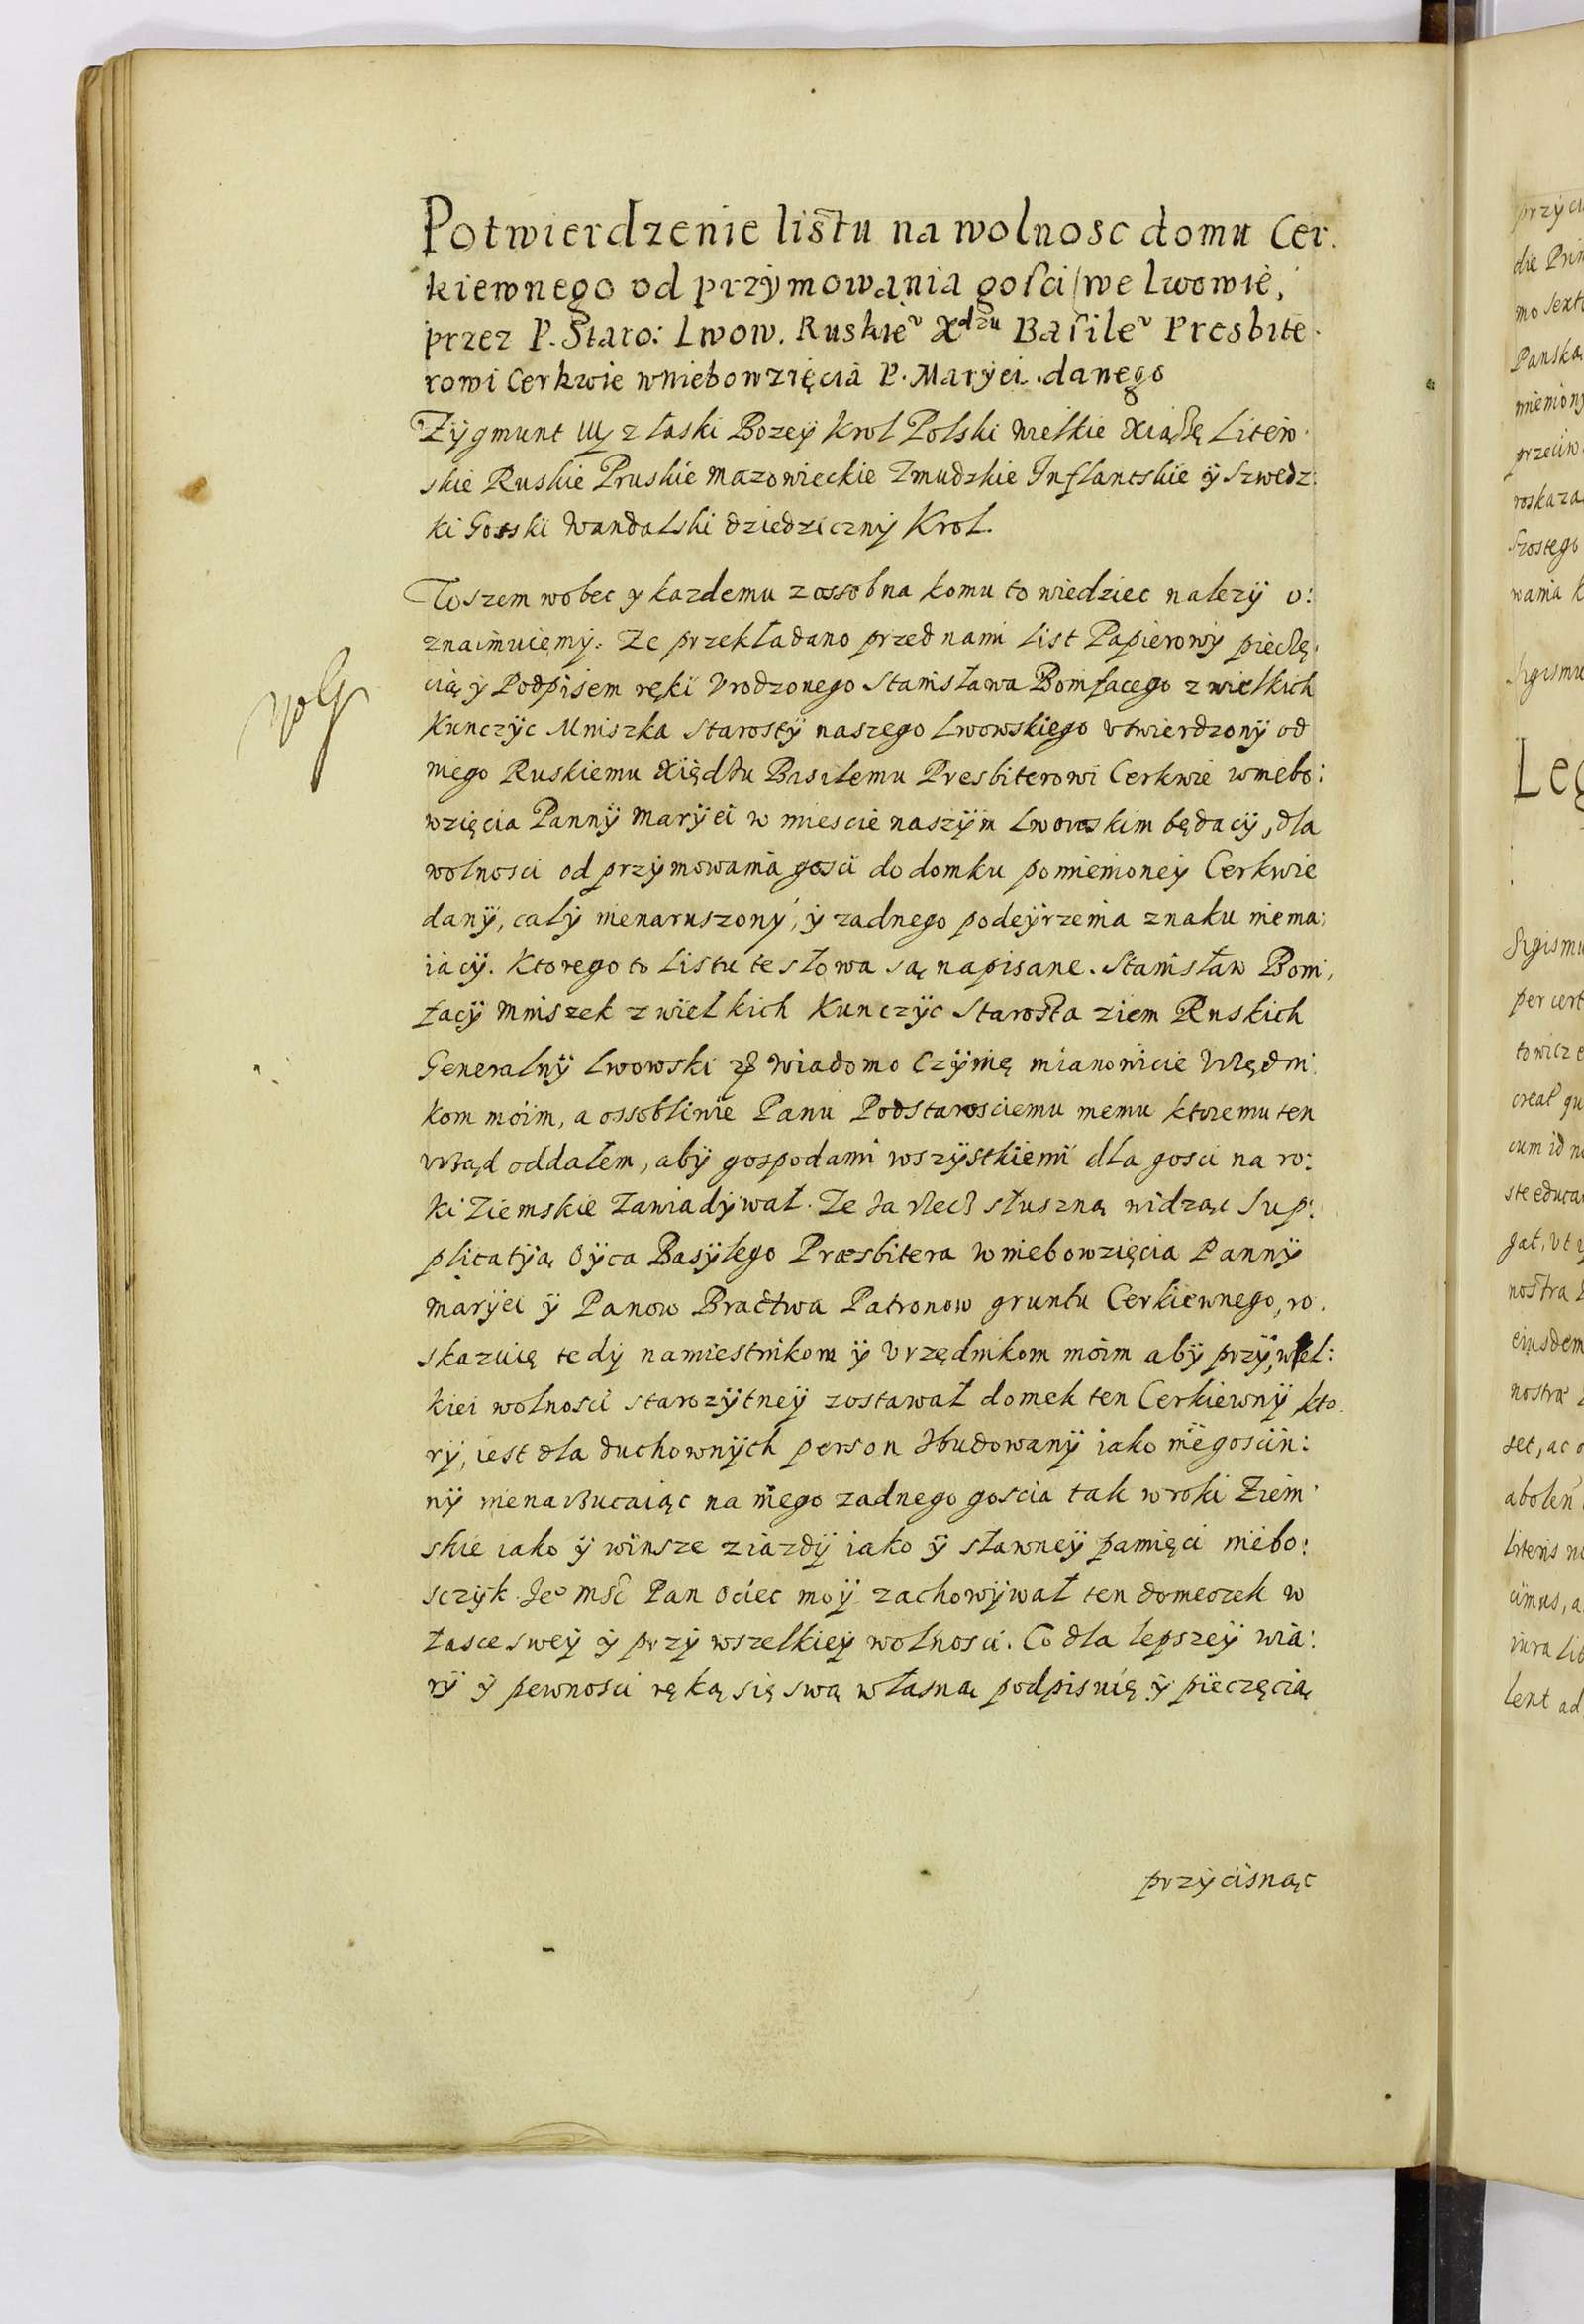 Potwierdzenie listu na wolnosc domu Cer.
kiewnego od przÿmowania gosci we Lwowie,
przez P. Staro: Lwow. Ruskieº Xdzu Basileº Presbite.
rowi Cerkwie wniebowzięcia P. Marÿei. danego
Zÿgmunt III z łaski Bozeÿ Krol Polski wielkie Xiąże Litew.
skie Ruskie Pruskie Mazowieckie Zmudzkie Inflantskie ÿ Szwedz:
ki Gotski Wandalski dziedzicznÿ Krol.
Wszem wobec y kazdemu z ossobna komu to wiedziec nalezÿ o:
znaimuiemÿ. Ze przekładano przed nami list Papierowÿ pieczę.
cią ÿ Podpisem ręki Vrodzonego Stanisława Bonifacego z wielkich
Kunczÿc Mniszka Starostÿ naszego Lwowskiego vtwierdzonÿ od
niego Ruskiemu Xiędzu Basilemu Presbiterowi Cerkwie wniebo:
wzięcia Pannÿ Marÿei w miescie naszÿm Lwowskim będacÿ, dla
wolnosci od przÿmowania gosci do domku pomienioneÿ Cerkwie
danÿ, całÿ nienaruszonÿ, ÿ zadnego podeÿrzenia znaku niema:
iacÿ. Ktorego to Listu te słowa są napisane. Stanisław Boni,
facÿ Mniszek z wielkich Kunczÿc Starosta ziem Ruskich
Generalnÿ Lwowski Wiadomo Czÿnię mianowicie Vrzędni:
kom moim, a ossobliwie Panu Podstarosciemu memu ktoremu ten
vrząd oddałem, abÿ gospodami wszÿstkiemi dla gosci na ro:
ki Ziemskie Zawiadÿwał. Ze Ja rzecz słuszną widząc Sup:
plicatÿą Oÿca Basÿlego Præsbitera wniebowzięcia Pannÿ
Marÿei ÿ Panow Bractwa Patronow gruntu Cerkiewnego, ro.
skazuię tedÿ namiestnikom ÿ Vrzędnikom moim abÿ przÿ wsel:
kiei wolnosci starozÿtneÿ zostawał domek ten Cerkiewnÿ kto.
rÿ, iest dla duchownÿch person zbudowanÿ iako niegoscin:
nÿ nienarzucaiąc na niego zadnego goscia tak w roki Ziem.
skie iako ÿ w insze ziazdÿ iako ÿ sławneÿ pamięci niebo:
sczÿk Jeº Msc Pan Ociec moÿ zachowÿwał ten domeczek w
łasce sweÿ ÿ przÿ wszelkieÿ wolnosci. Co dla lepszeÿ wia:
rÿ ÿ pewnosci ręką się swą własną podpisuię ÿ pieczęcią
przÿcisnąc